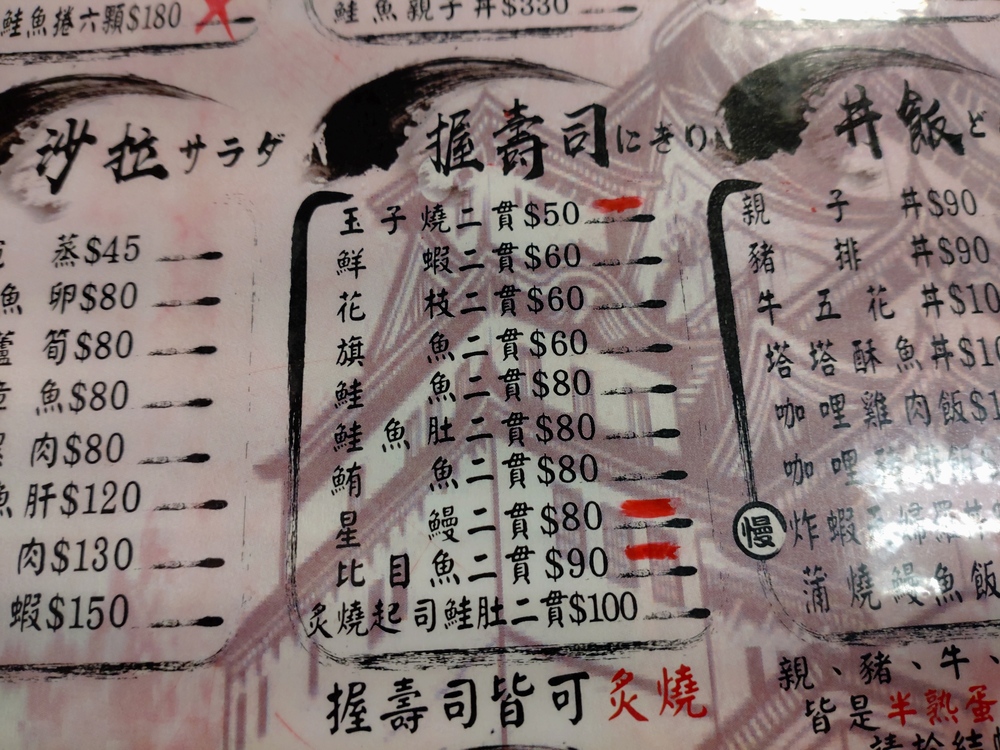 鮭魚捲六顆$180
鮭魚親子丼$330
沙拉サラダ
蒸$45
魚卵$80
蘆筍$80
章魚$80
肉$80
魚肝$120
肉$130
蝦$150
握壽司にきり
玉子燒二貫$50
鮮蝦二貫$60
花枝二貫$60
旗魚二貫$60
鮭魚二貫$80
鮭魚肚二貫$80
鮪魚二貫$80
星鰻二貫$80
比目魚二貫$90
炙燒起司鮭肚二貫$100
握壽司皆可炙燒
丼飯ど
親子丼$90
豬排丼$90
牛五花丼$10
塔塔酥魚丼$10
咖哩雞肉飯$1
咖哩
慢
炸蝦
蒲燒鰻魚飯
親、豬、牛、
皆是半熟蛋